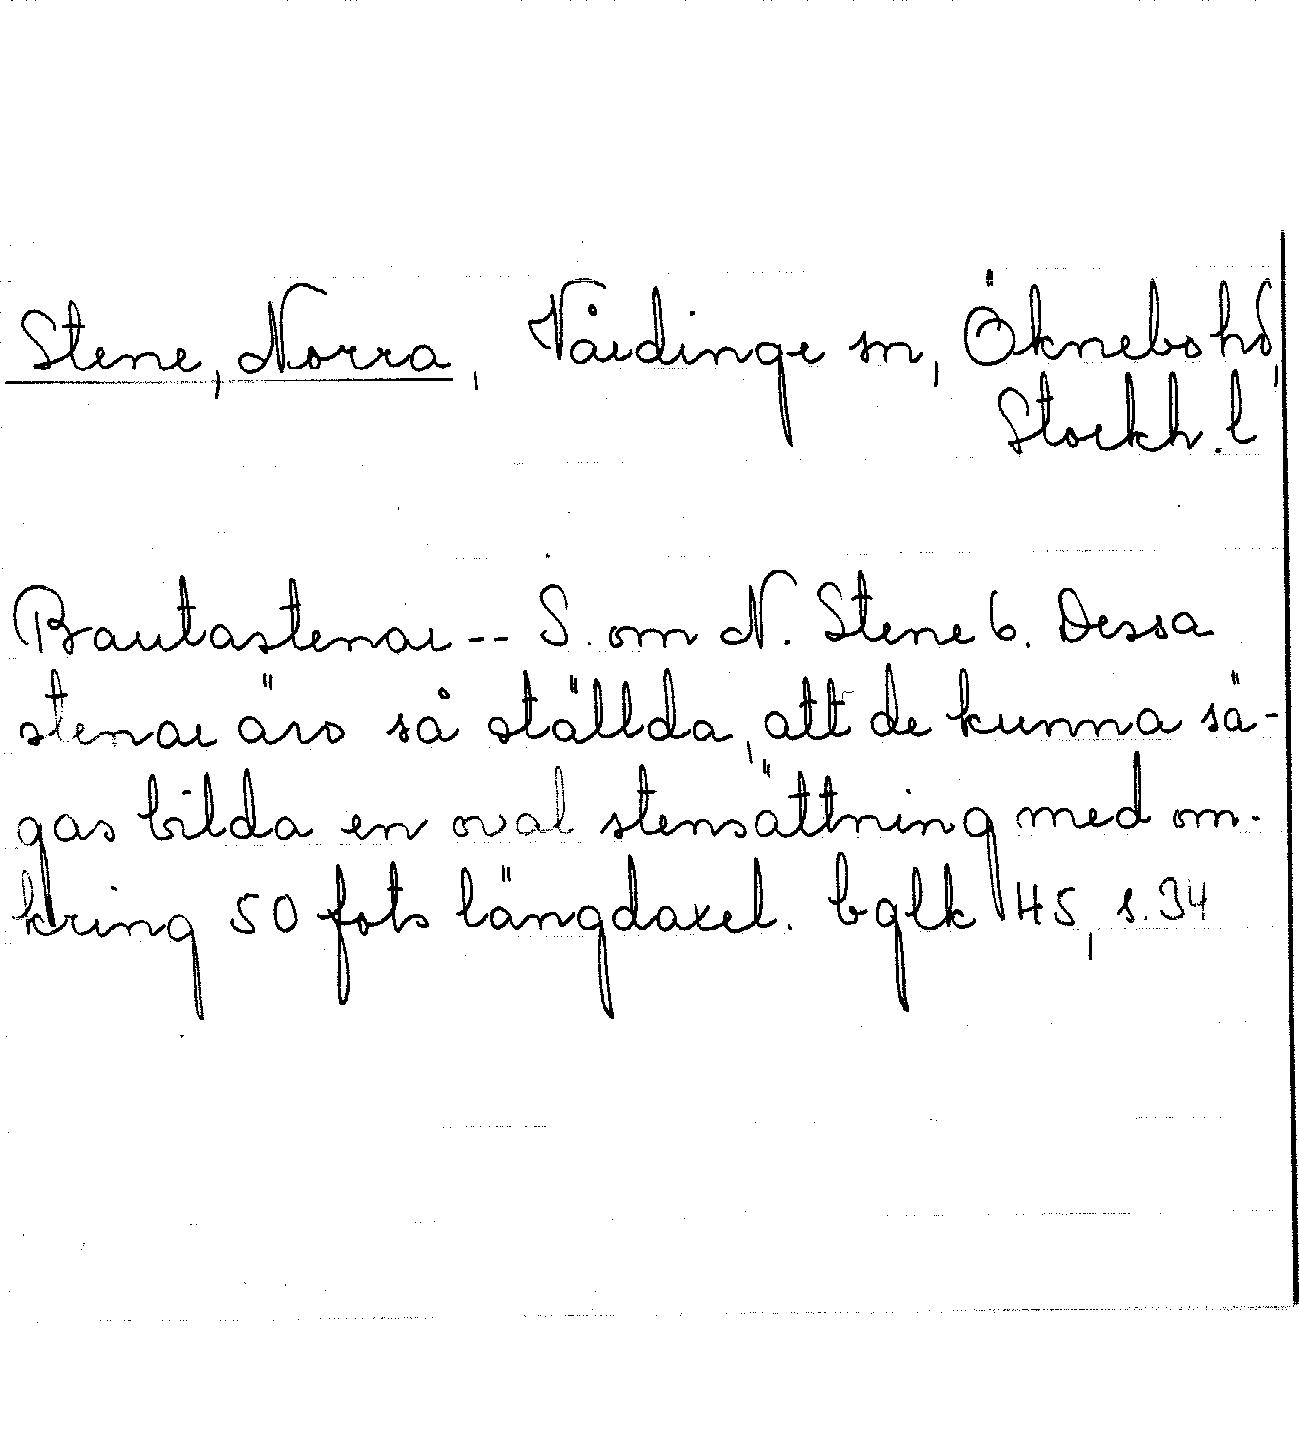 Stene, Norra, Vårdinge sn, Öknebo hd,
Stockh. l
Bautastenar -- S. om N. Stene 6. Dessa
stenar äro så ställda, att de kunna sä-
gas bilda en oval stensättning med om-
kring 50 fots längdaxel. bglk 45, s. 34